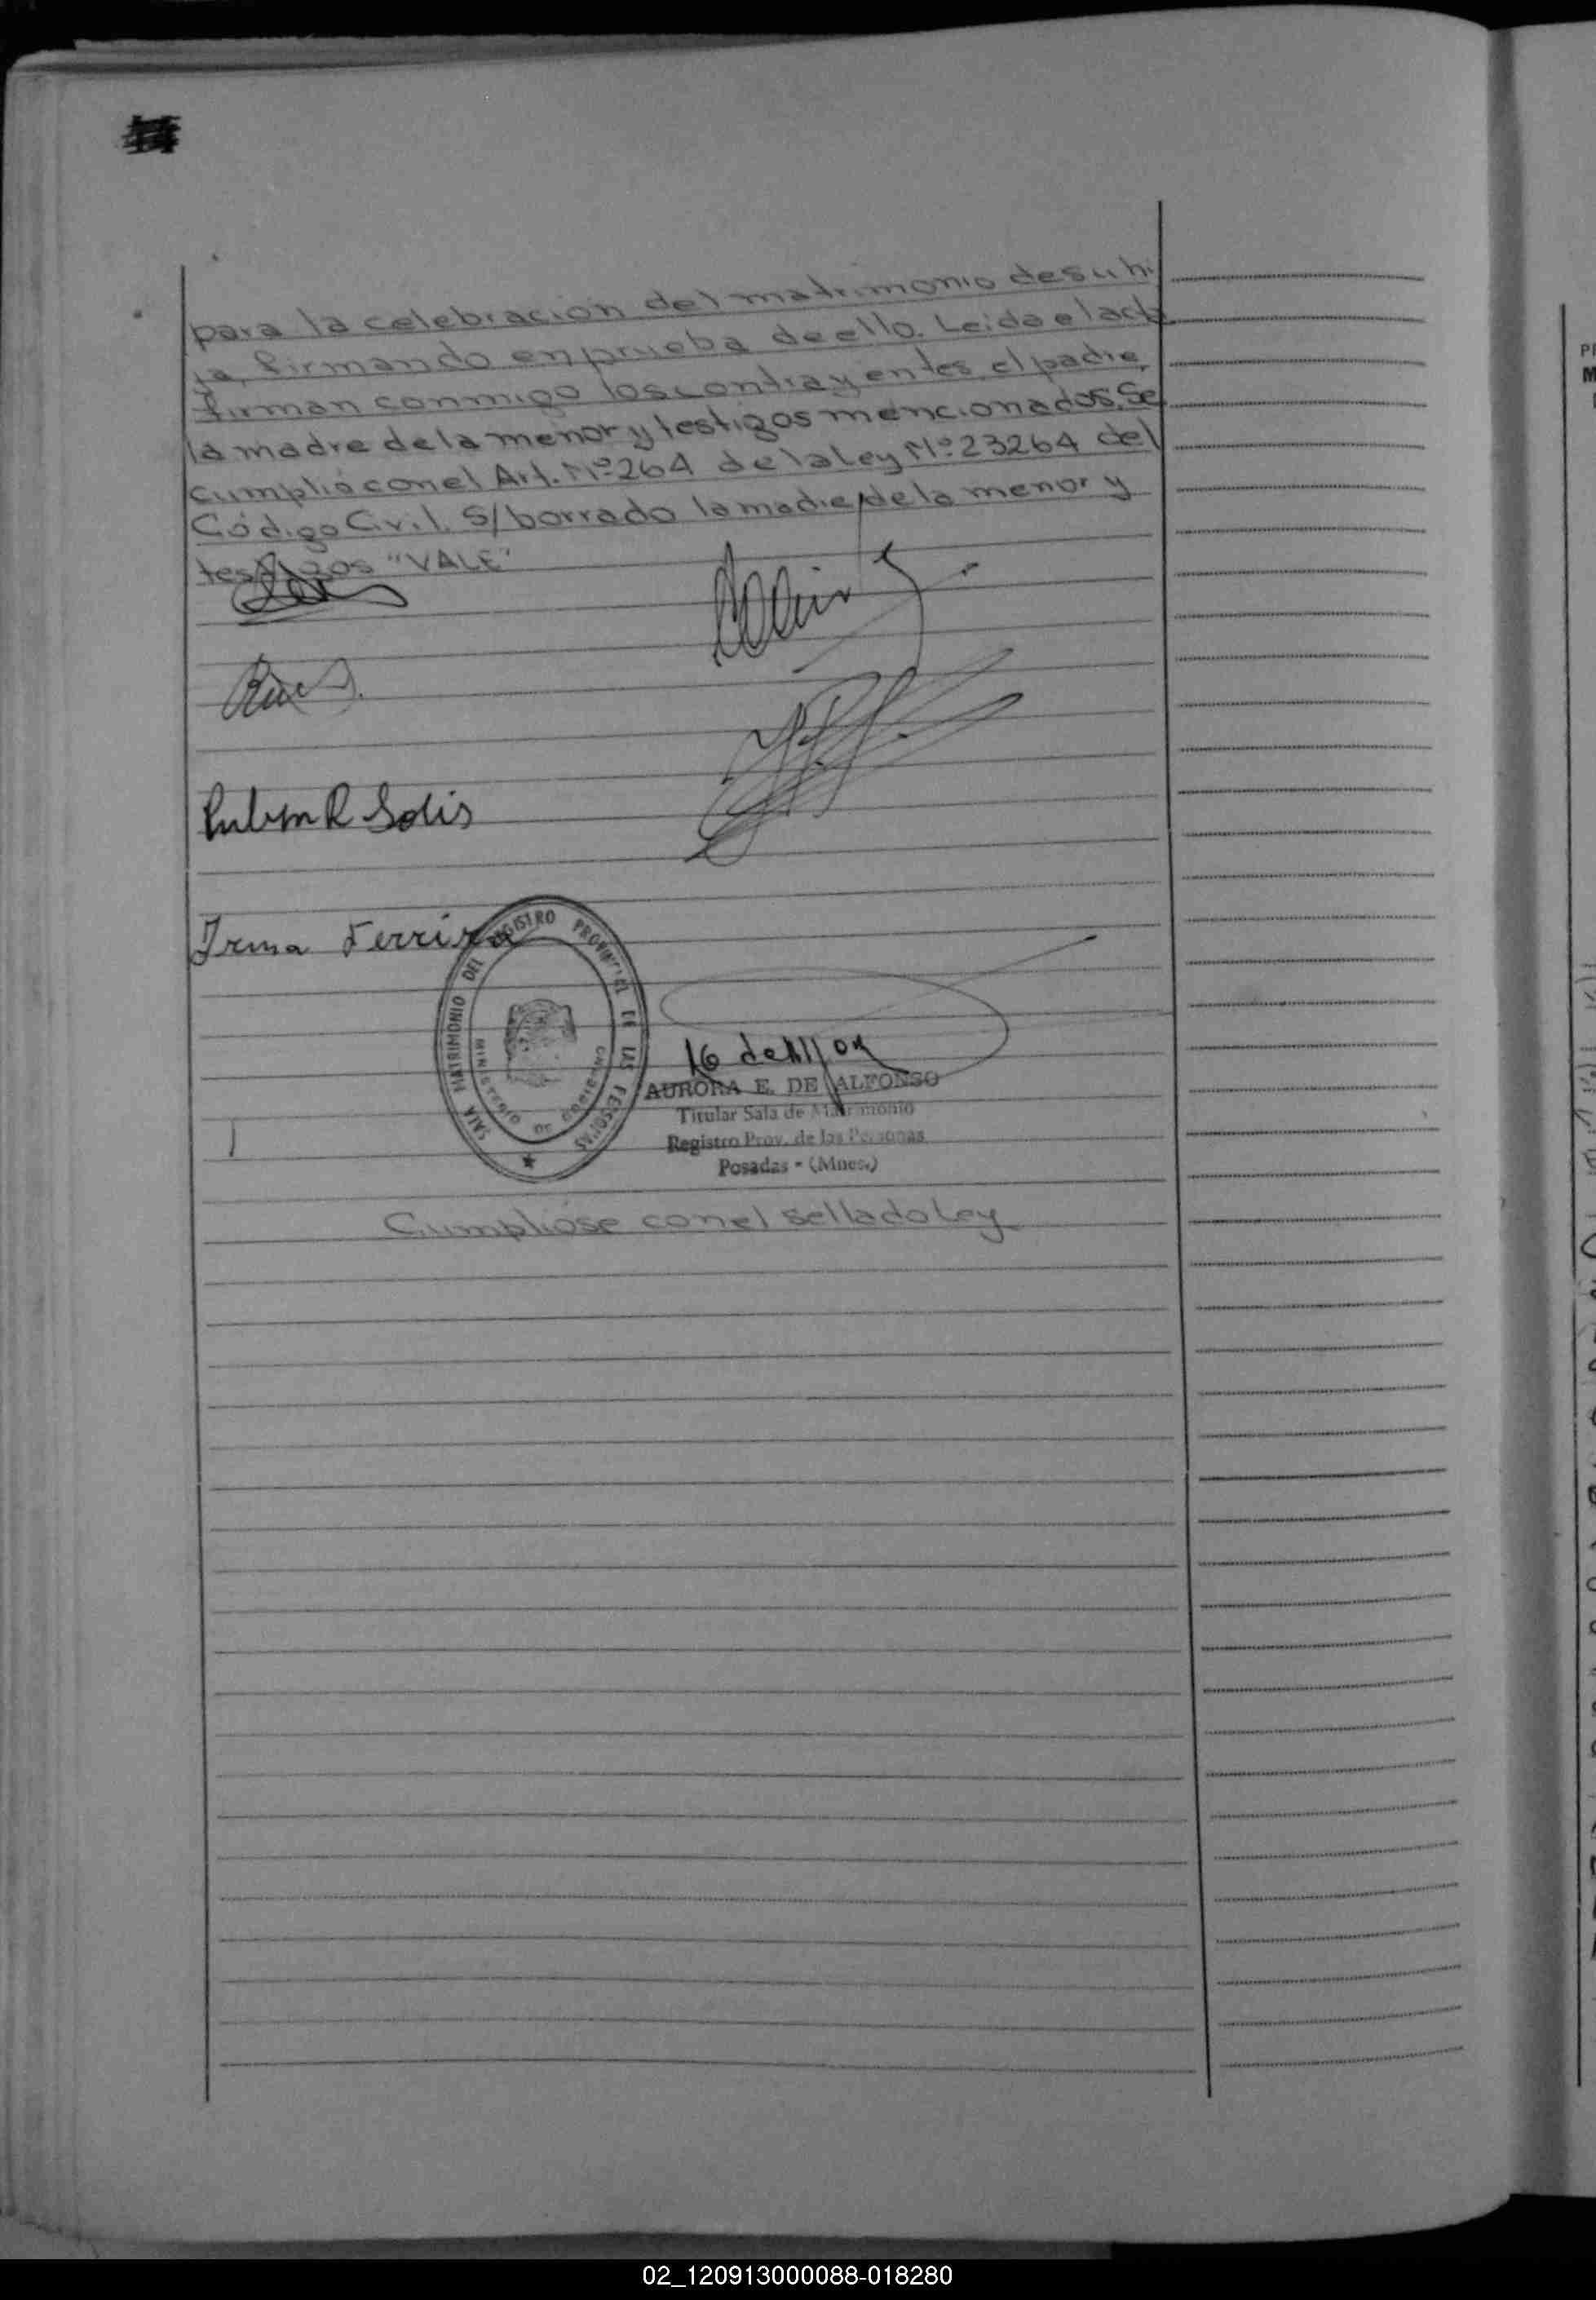 para la celebración del matrimonio de su hi
ja, firmando en prueba de ello. Leida el acta
firman conmigo los contrayentes, el padre,
la madre de la menor y testigos mencionados. Se
cumplió con el Art. Nº 264 de la Ley Nº 23264 del
Código Civil. S/borrado la madre de la menor y
testigos "VALE"
Ruben R Solis
Irma Ferrira
SALA MATRIMONIO DEL REGISTRO PROVINCIAL DE LAS PERSONAS
MINISTERIO DE GOBIERNO
AURORA E. DE ALFONSO
Titular Sala de Matrimonio
Registro Prov. de las Personas
Posadas - (Mnes.)
Cumplióse con el sellado Ley
02_120913000088-018280